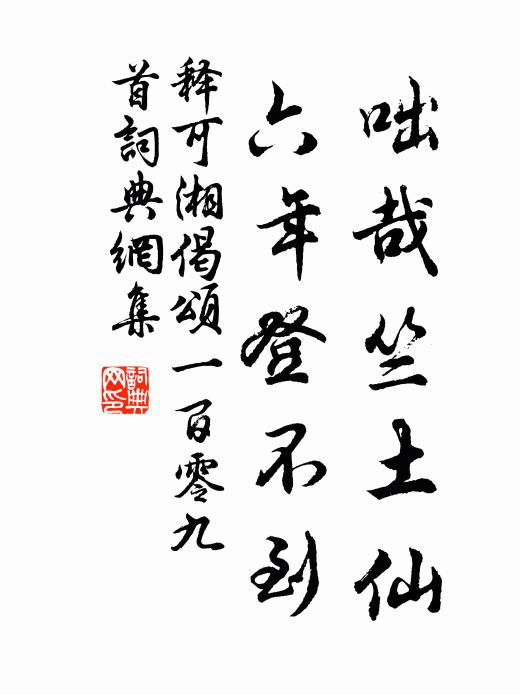 咄哉竺土仙
六年登不到
释可湘偈頌一百零九
首詞典網集
詞典
网印